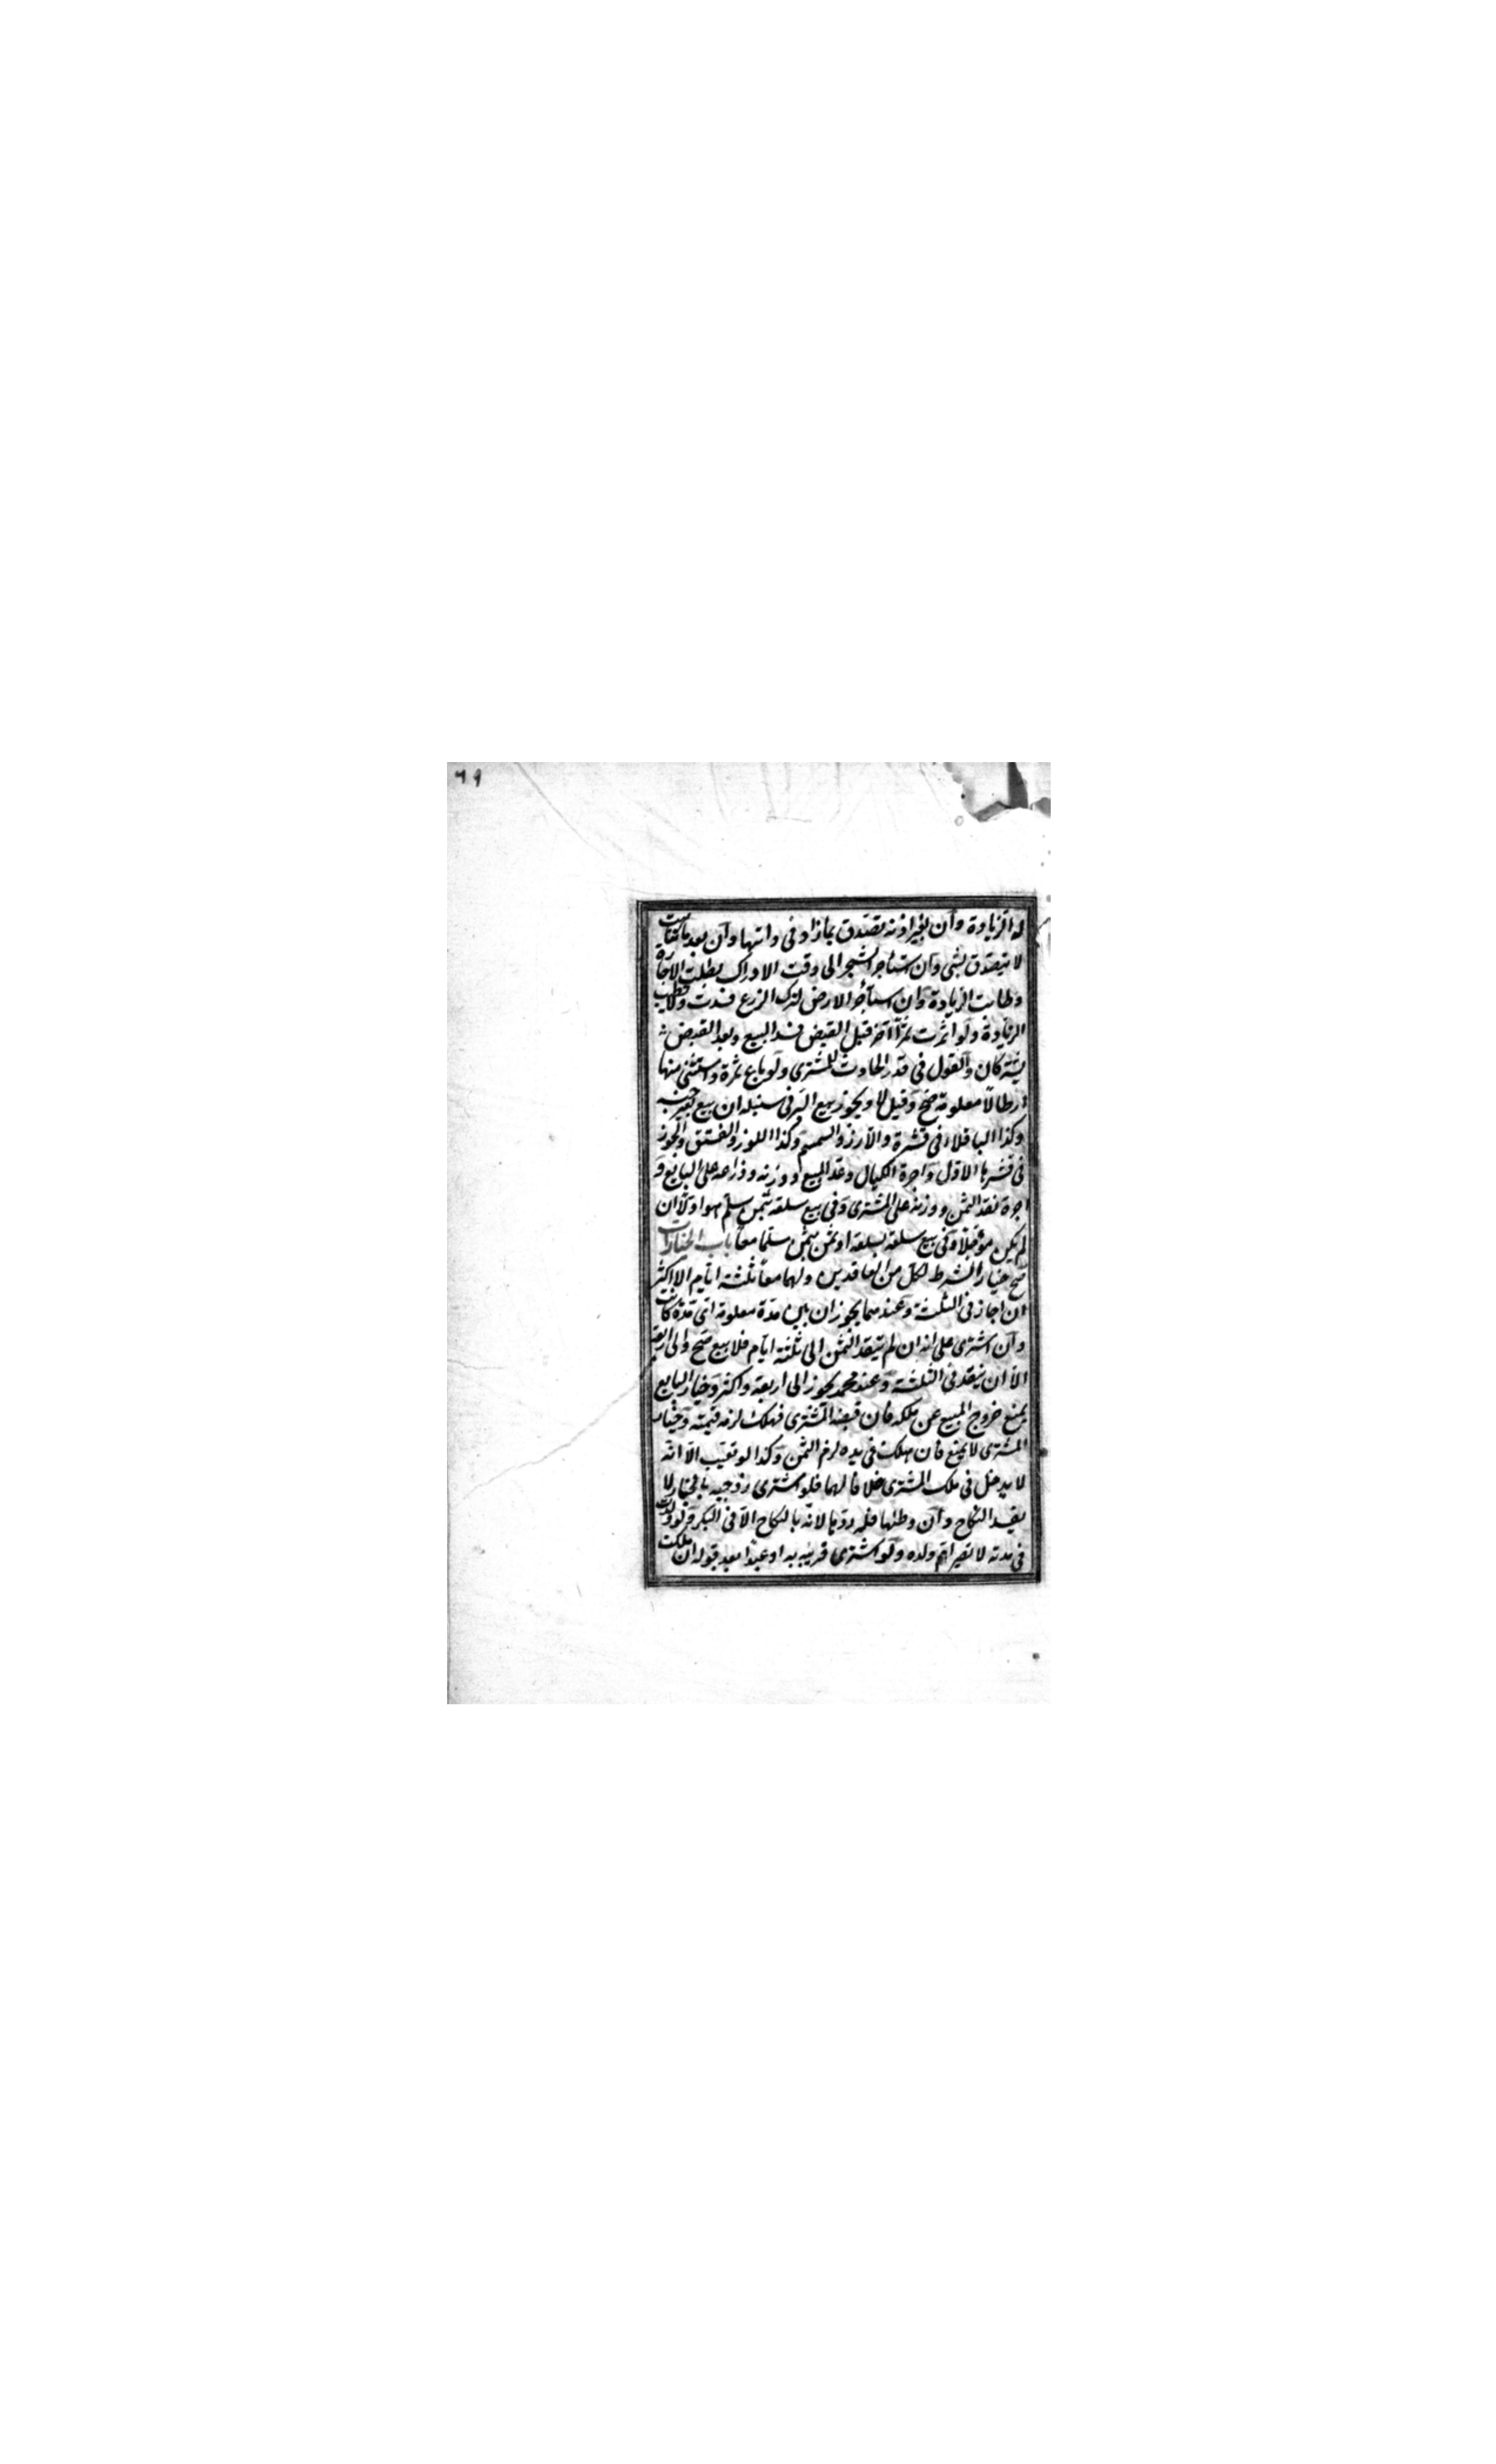 ٦٩
له الزيادة وان بغير اذنه تصدق بما زاد فى ذاتها وان بعد ما تناهت
لا يتصدق بشئ وان استأجر الشجر الى وقت الادراك بطلت الاجارة
وطابت الزيادة وان استأجر الارض لترك الزرع فسدت ولا تطيب
الزيادة ولو اثمرت ثمرا آخر قبل القبض فسد البيع وبعد القبض
يشتركان والقول فى قدر الحادث للمشترى ولو باع ثمرة واستثنى منها
ارطالا معلومة صح وقيل لا ويجوز بيع البر فى سنبله ان بيع بغير جنسه
وكذا الباقلاء فى قشره والارز والسمسم وكذا اللوز والفستق والجوز
فى قشرها الاول واجرة الكيال وعد المبيع ووزنه وذراعه على البايع و
اجرة نقد الثمن ووزنه على المشترى وفى بيع سلعة بثمن سلم هو اولا ان
لم يكن مؤجلا وفى بيع سلعة بسلعة او ثمن بثمن سلما معا باب الخيارات
صح خيار الشرط لكل من العاقدين ولهما معا ثلثة ايام لا اكثر
ان اجاز فى الثلثة وعندهما يجوز ان بين مدة معلومة اى مدة كانت
وان اشترى على انه ان لم ينقد الثمن الى ثلثة ايام فلا بيع صح والى اربعة
الا ان ينقد فى الثلثة وعند محمد يجوز الى اربعة واكثر وخيار البايع
يمنع خروج المبيع عن ملكه فان قبضه المشترى فهلك لزمه قيمته وخيار
المشترى لا يمنع فان هلك فى يده لزم الثمن وكذا لو تعيب الا انه
لا يدخل فى ملك المشترى خلافا لهما فلو اشترى زوجته بالخيار لا
يفسد النكاح وان وطئها فله ردها لانه بالنكاح الا فى البكر ولو ولدت
فى مدته لا تصير ام ولده ولو اشترى قريبه به او عبدا بعد قوله ان ملكت